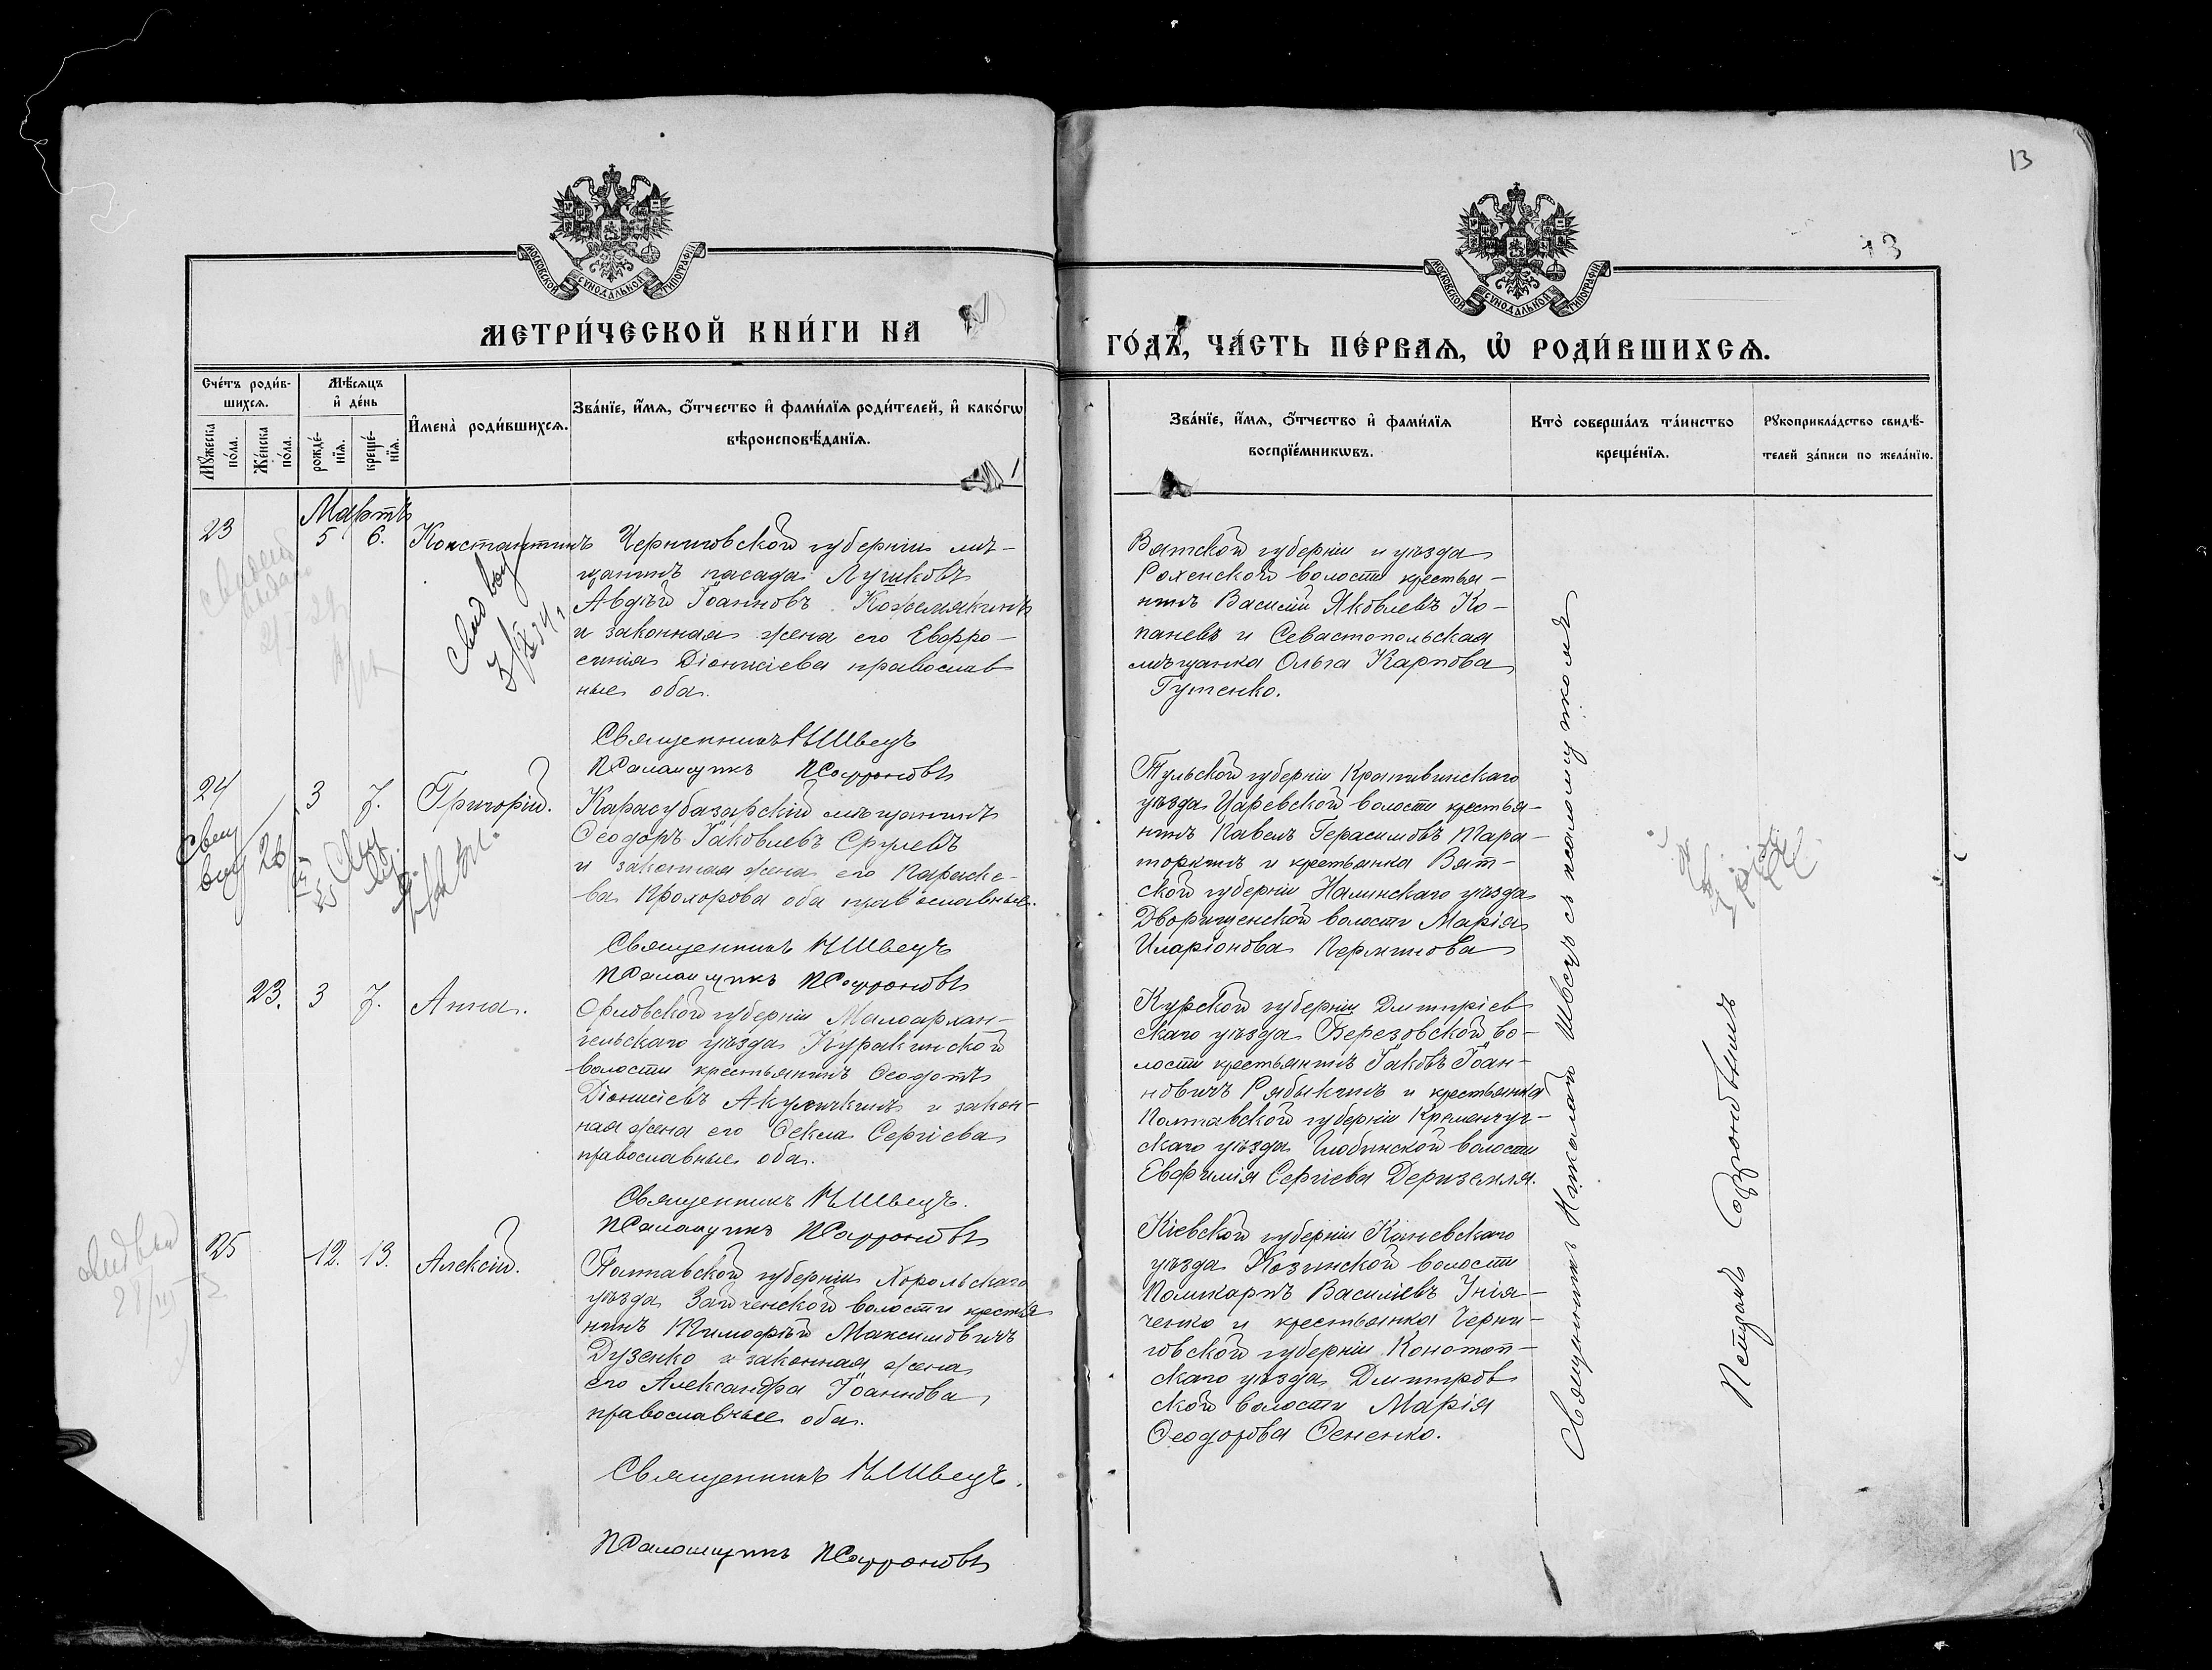 13
13
МОСКОВСКОЙ СѴНОДАЛЬНОЙ ТИПОГРАФІИ
МОСКОВСКОЙ СѴНОДАЛЬНОЙ ТИПОГРАФІИ
МЕТРИ́ЧЕСКОЙ КНИ́ГИ НА
ГО́ДЪ, ЧА́СТЬ ПЕ́РВАѦ, Ѡ РОДИ́ВШИХСѦ.
Сче́тъ роди́в-
шихсѧ.
Мꙋ́жеска по́ла.
Же́нска по́ла.
Мѣ́сѧцъ
и҆ де́нь
рожде́-
нїѧ.
креще́-
нїѧ.
И҆мена̀ роди́вшихсѧ.
Зва́нїе, и҆́мѧ, ѻ҆́тчество и҆ фами́лїѧ роди́телей, и҆ како́гѡ
вѣроисповѣ́данїѧ.
Зва́нїе, и҆́мѧ, ѻ҆́тчество и҆ фами́лїѧ
воспрїе́мникѡвъ.
Кто̀ соверша́лъ та́инство
креще́нїѧ.
Рꙋкоприкла́дство свидѣ́-
телей за́писи по жела́нїю.
Мартъ
23
5
6.
Константинъ
Черниговской губерніи мѣ-
щанинъ посада Лужковъ
Авдѣй Іоанновъ Кожемякинъ
и законная жена его Евфро-
синія Діонисіева православ
ные оба.
Священникъ Н Швецъ
Псаломщикъ П Сафроновъ
Вятской губерніи и уѣзда
волости крестья-
нинъ Василій Яковлевъ Ко-
паневъ и Севастопольская
мѣщанка Ольга Карпова
Гутенко.
24
3
7.
Григорій.
Карасубазарскій мѣщанинъ
Ѳеодоръ Іаковлевъ Срулевъ
и законная жена его Параске-
ва Прохорова оба православные.
Священникъ Н Швецъ
Псаломщикъ П Сафроновъ
Тульской губерніи Крапивинскаго
уѣзда Царевской волости крестья-
нинъ Павелъ Герасимовъ Тара-
торкинъ и крестьянка Вят-
ской губерніи Нолинскаго уѣзда
Дворищенской волости Марія
Иларіонова Перминова
23.
3
7.
Анна.
Орловской губерніи Малоархан-
гельскаго уѣзда Куракинской
волости крестьянинъ Ѳеодотъ
Діонисіевъ Акуличкинъ и закон-
ная жена его Ѳекла Сергіева
православные оба.
Священникъ Н Швецъ.
Псаломщикъ П Сафроновъ
Курской губерніи Дмитріев
скаго уѣзда Березовской во-
лости крестьянинъ Іаковъ Іоан-
новичъ Рябыкинъ и крестьянка
Полтавской губерніи Кременчуг-
скаго уѣзда Глобинской волости
Евфимія Сергіева Дериземля.
25
12.
13.
Алексій.
Полтавской губерніи Хорольскаго
уѣзда Зайченской волости крестья
нинъ Тимофѣй Максимовичъ
Дузенко и законная жена
его Александра Іоаннова
православные оба.
Священникъ Н Швецъ.
Псаломщикъ П Сафроновъ
Кіевской губерніи Каневскаго
уѣзда Козинской волости
Поликарпъ Василіевъ Унія-
ченко и крестьянка Черни-
говской губерніи Конотоп-
скаго уѣзда Дмитров
ской волости Марія
Ѳеодорова Сененко.
Священникъ Николай Швецъ съ псаломщикомъ
Сафроновымъ